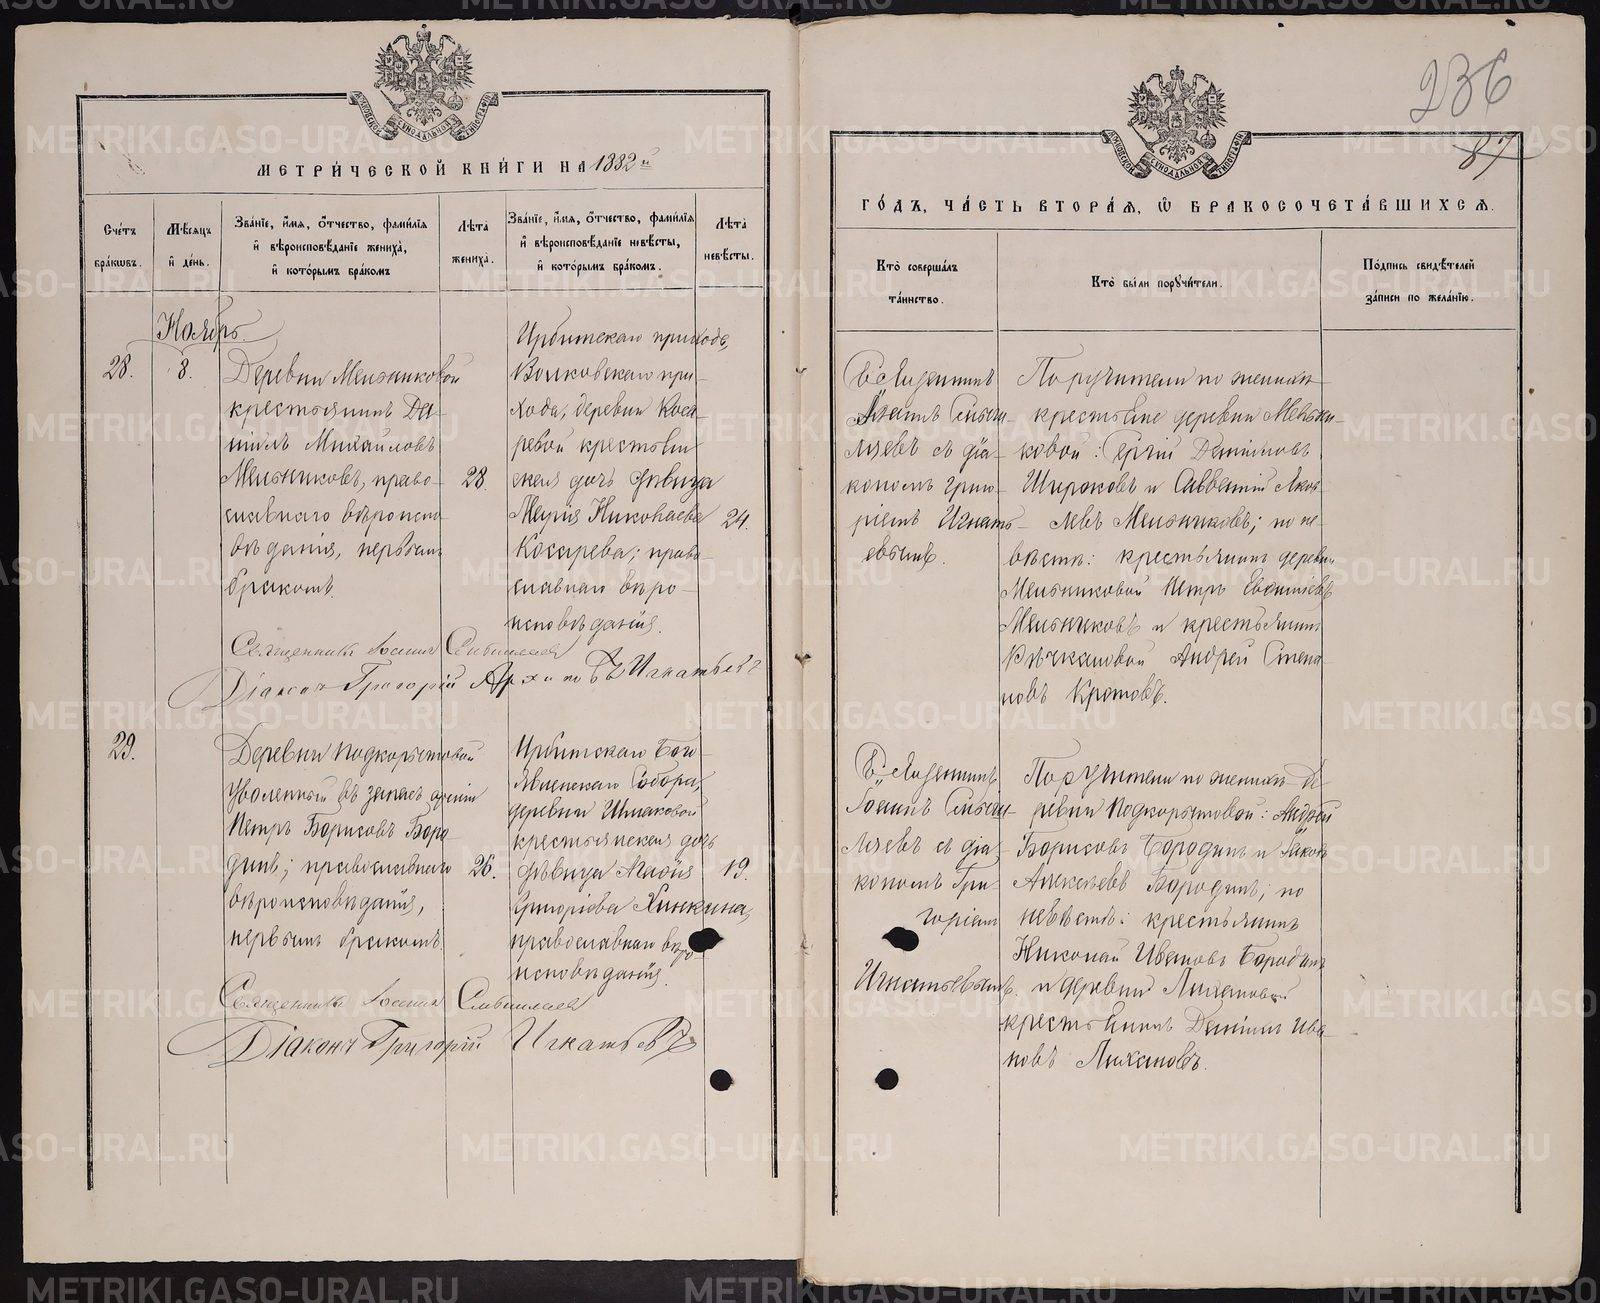 МЕТРИ́ЧЕСКОЙ КНИ́ГИ НА 1882й
Сче́тъ бра́кѡвъ.
Мѣ́сяцъ и҆ де́нь.
Зва́нїе, и҆́мя, ѻ҆́тчество, фами́лїя и҆ вѣроисповѣ́данїе жениха̀, и҆ кото́рымъ бра́комъ
Лѣ́та жениха̀.
Зва́нїе, и҆́мя, ѻ҆́тчество, фами́лїя и҆ вѣроисповѣ́данїе невѣ́сты, и҆ кото́рымъ бра́комъ.
Лѣ́та невѣ́сты.
Ноябрь.
28.
8.
Деревни Мельниковой
крестьянинъ Да-
нiилъ Михайловъ
Мельниковъ, право-
славнаго вѣроиспо-
вѣданiя, первымъ
бракомъ.
28.
Ирбитскаго прихода,
Волковскаго при-
хода, деревни Коса-
ревой крестьян
ская дочь дѣвица
Марiя Николаева
Косарева; право-
славнаго вѣро-
исповѣданiя.
24.
Священникъ Iоаннъ
Дiаконъ Григорiй Игнатьевъ
29.
Деревни Подкорытовой
уволенный въ запасъ армiи
Петръ Борисовъ Боро-
динъ; православнаго
вѣроисповѣданiя,
первымъ бракомъ.
26.
Ирбитскаго Бого-
явленскаго Собора,
деревни Шмаковой
крестьянская дочь
дѣвица Агаѳiя
Григорiева Хинкина,
православнаго вѣро
исповѣданiя.
19.
Священникъ Iоаннъ
Дiаконъ Григорiй Игнатьевъ
236
87
ГО́ДЪ, ЧА́СТЬ ВТОРА́Я, Ѡ҆ БРАКОСОЧЕТА́ВШИХСЯ.
Кто̀ соверша́лъ та́инство.
Кто̀ бы́ли порꙋчи́тели.
По́дпись свидѣ́телей за́писи по жела́нїю.
Священникъ
Iоаннъ
съ дiа-
кономъ Григо-
рiемъ Игнать-
евымъ.
Поручители по женихѣ
крестьяне деревни Мельни-
ковой: Сергiй Данiиловъ
Широковъ и Савватiй Яков-
левъ Мельниковъ; по не-
вѣстѣ: крестьянинъ деревни
Мельниковой Петръ
Мельниковъ и крестьянинъ
Рѣчкаловой Андрей Степа
новъ Кротовъ.
Священникъ
Iоаннъ
съ дiа-
кономъ Гри-
горiемъ
Игнатьевымъ.
Поручители по женихѣ де
ревни Подкорытовой: Андрей
Борисовъ Бородинъ и Iаковъ
Алексѣевъ Бородинъ; по
невѣстѣ: крестьянинъ
Николай Ивановъ Бородинъ
и деревни Лихановой
крестьянинъ Данiилъ Ива
новъ Лихановъ.
METRIKI.GASO-URAL.RU